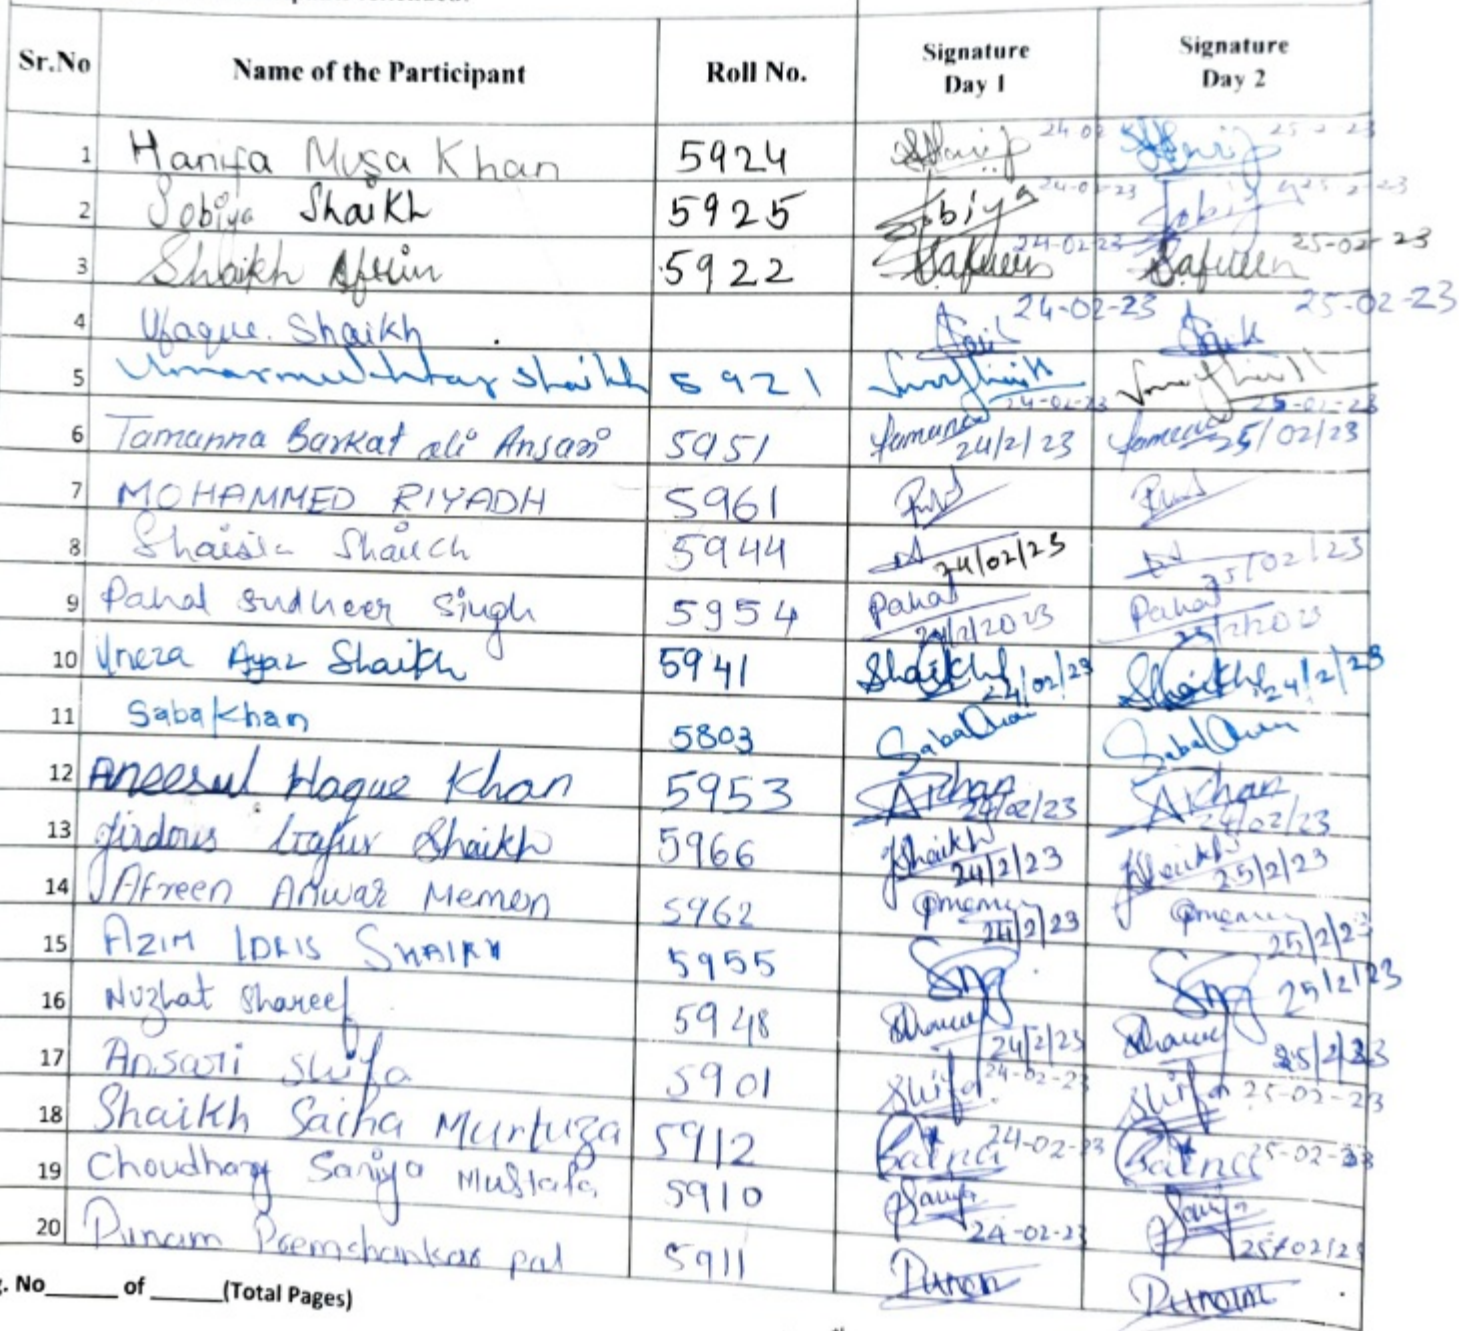 Sr.No Name of the Participant Roll No. Signature Day 1 Signature Day 2
1 Hanifa Musa Khan 5924 24-02 25-2-23
2 Sobiya Shaikh 5925 Sobiya 24-02-23 Sobiya 25-2-23
3 Shaikh Afrin 5922 24-02-23 25-02-23
4 Ufaque. Shaikh 24-02-23 25-02-23
5 Umarmukhtar Shaikh 5921 24-02-23 25-02-23
6 Tamanna Barkat ali Ansari 5951 Tamanna 24/2/23 25/02/23
7 MOHAMMED RIYADH 5961
8 Shaista Shaikh 5944 24/02/23 25/02/23
9 Pahal Sudheer Singh 5954 Pahal 24/2/2023 Pahal 25/2/2023
10 Uneza Ayaz Shaikh 5941 Shaikh 24/02/23 Shaikh 24/2/23
11 Saba Khan 5803
12 Aneesul Haque Khan 5953 AKhan 24/02/23 AKhan 24/02/23
13 Firdous Gafur Shaikh 5966 FShaikh 24/2/23 FShaikh 25/2/23
14 Afreen Anwar Memon 5962 24/2/23 25/2/23
15 AZIM IDRIS SHAIKH 5955 25/2/23
16 Nuzhat Shareef 5948 24/2/23 25/2/23
17 Ansari Shifa 5901 Shifa 24-02-23 Shifa 25-02-23
18 Shaikh Saiha Murtuza 5912 24-02-23 25-02-23
19 Choudhary Saniya Mustafa 5910 Saniya 24-02-23 Saniya 25/02/23
20 Punam Premshankar pal 5911 Punam Punam
. No______ of ______(Total Pages)